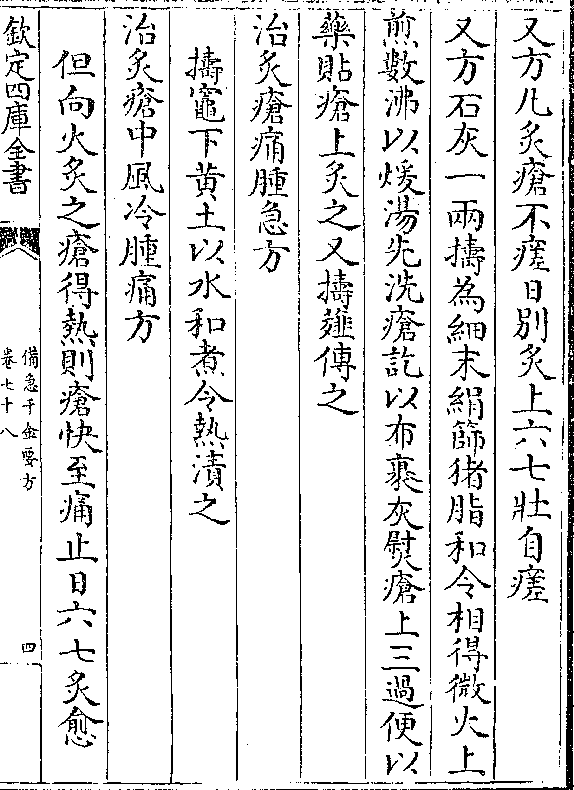 又方凡炙瘡不瘥日别炙上六七壯自瘥
又方石灰一兩擣為細末絹篩猪脂和令相得微火上
煎數沸以煖湯先洗瘡訖以布裹灰熨瘡上三過便以
藥貼瘡上炙之又擣薤傅之
治炙瘡痛腫急方
擣竈下黄土以水和煮令熱漬之
治炙瘡中風冷腫痛方
但向火炙之瘡得熱則瘡快至痛止日六七炙愈
欽定四庫全書
備急千金要方
卷七十八
四